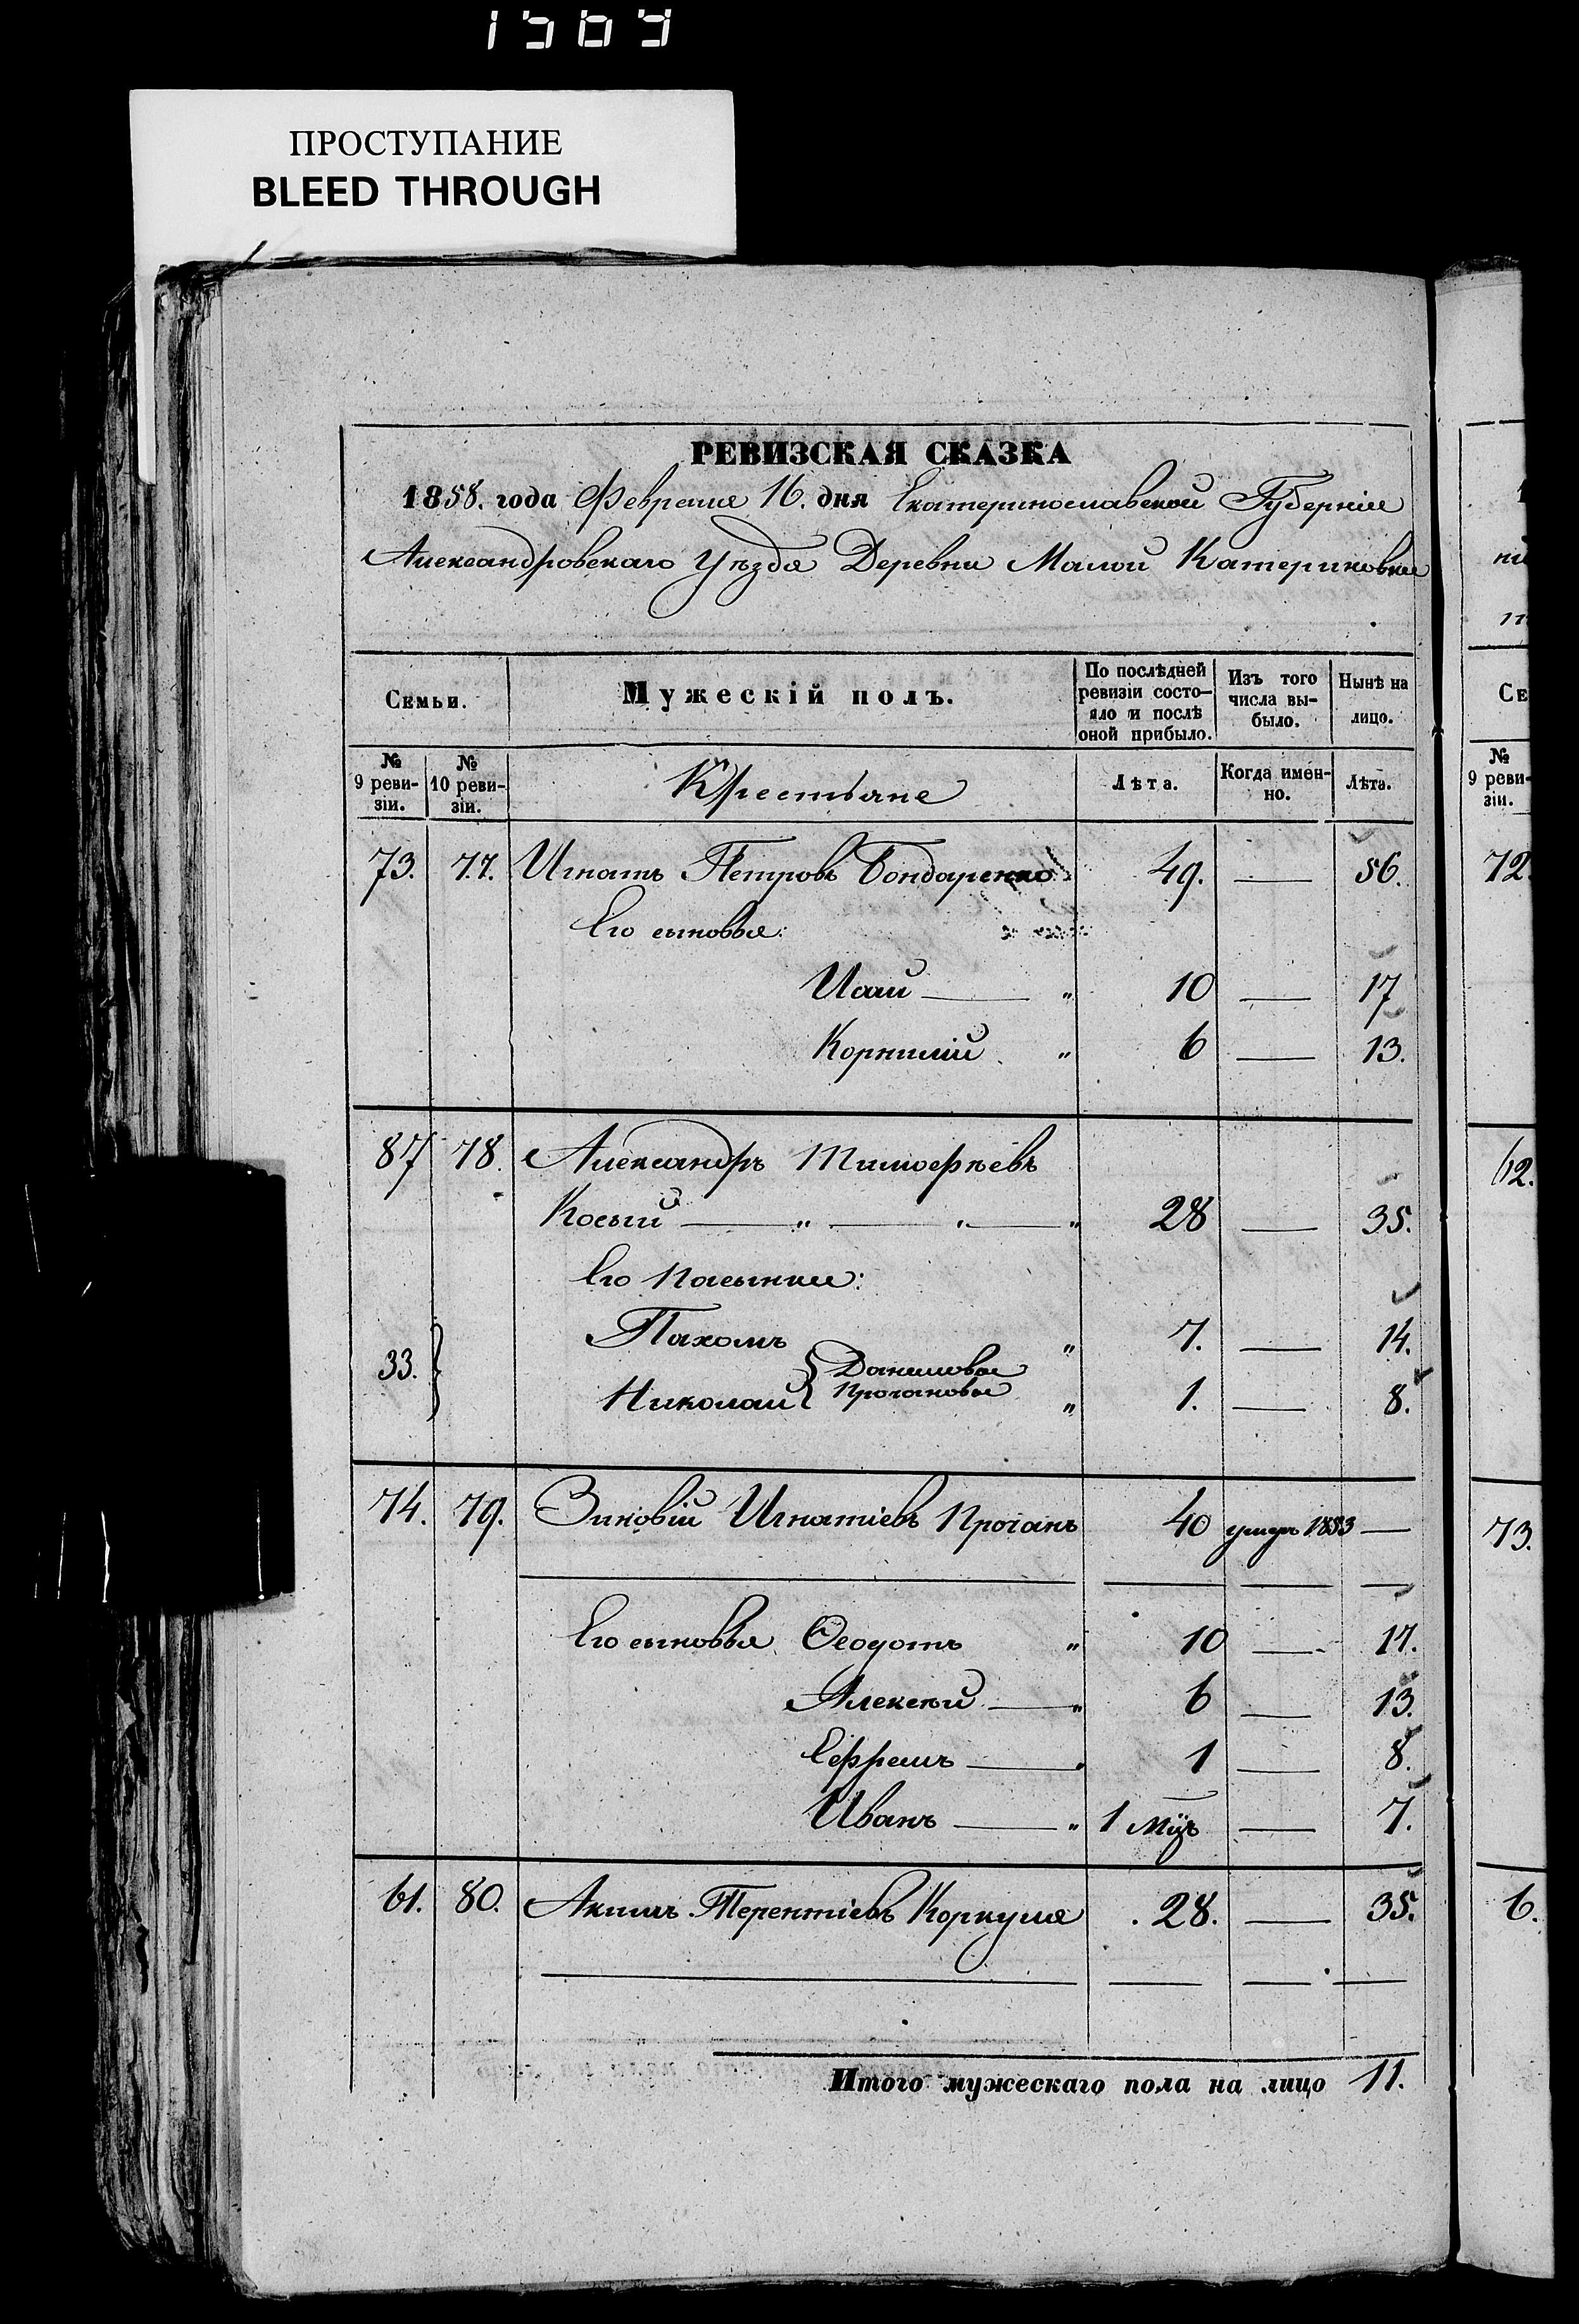 1569
ПРОСТУПАНИЕ
BLEED THROUGH
РЕВИЗСКАЯ СКАЗКА
1858. года Февраля 16. дня Екатеринославской Губерніи
Александровскаго Уѣзда Деревни Малой Катериновки
Семьи.
Мужескій полъ.
По послѣдней ревизіи состояло и послѣ оной прибыло.
Изъ того числа выбыло.
Нынѣ на лицо.
№ 9 ревизіи.
№ 10 ревизіи.
Крестьяне
Лѣта.
Когда именно.
Лѣта.
73. 77. Игнатъ Петровъ Бондаренко 49. — 56.
Его сыновья:
Исай — " 10 — 17
Корнилій " 6 — 13.
87 78. Александръ Тимофѣевъ
Косый — " — " — " 28 — 35.
Его пасынки:
Пахомъ " 7. — 14.
33. } { Даниловы
Прочановы
Николай " 1. — 8.
74. 79. Зиновій Игнатіевъ Прочанъ 40 умеръ 1853 —
Его сыновья Ѳеодотъ " 10 — 17.
Алексѣй — " 6 — 13.
Ефремъ — " 1 — 8.
Иванъ — " 1 мцъ — 7.
61. 80. Акимъ Терентіевъ Коркуша 28. — 35.
Итого мужескаго пола на лицо 11.
Се
№ 9 реви-
зіи.
72.
62.
73.
6.